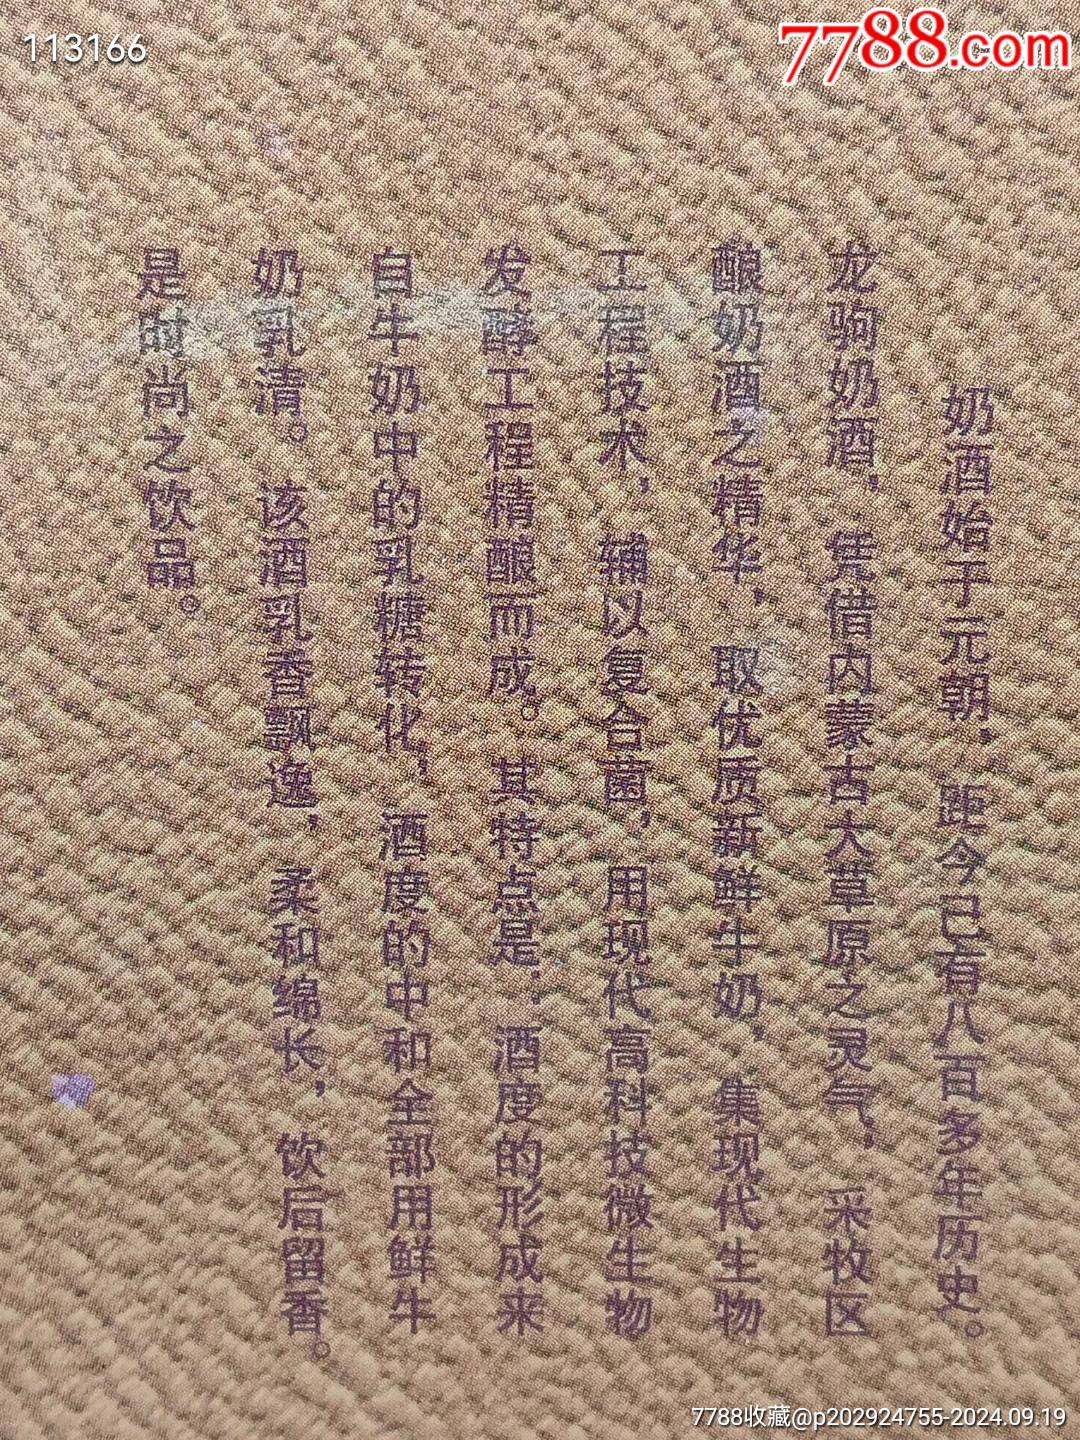 113166
7788.com
奶酒始于元朝，距今已有八百多年历史。
龙驹奶酒，凭借内蒙古大草原之灵气，采牧区
酿奶酒之精华，取优质新鲜牛奶，集现代生物
工程技术，辅以复合菌，用现代高科技微生物
发酵工程精酿而成。其特点是：酒度的形成来
自牛奶中的乳糖转化，酒度的中和全部用鲜牛
奶乳清。该酒乳香飘逸，柔和绵长，饮后留香。
是时尚之饮品。
7788收藏@p202924755-2024.09.19